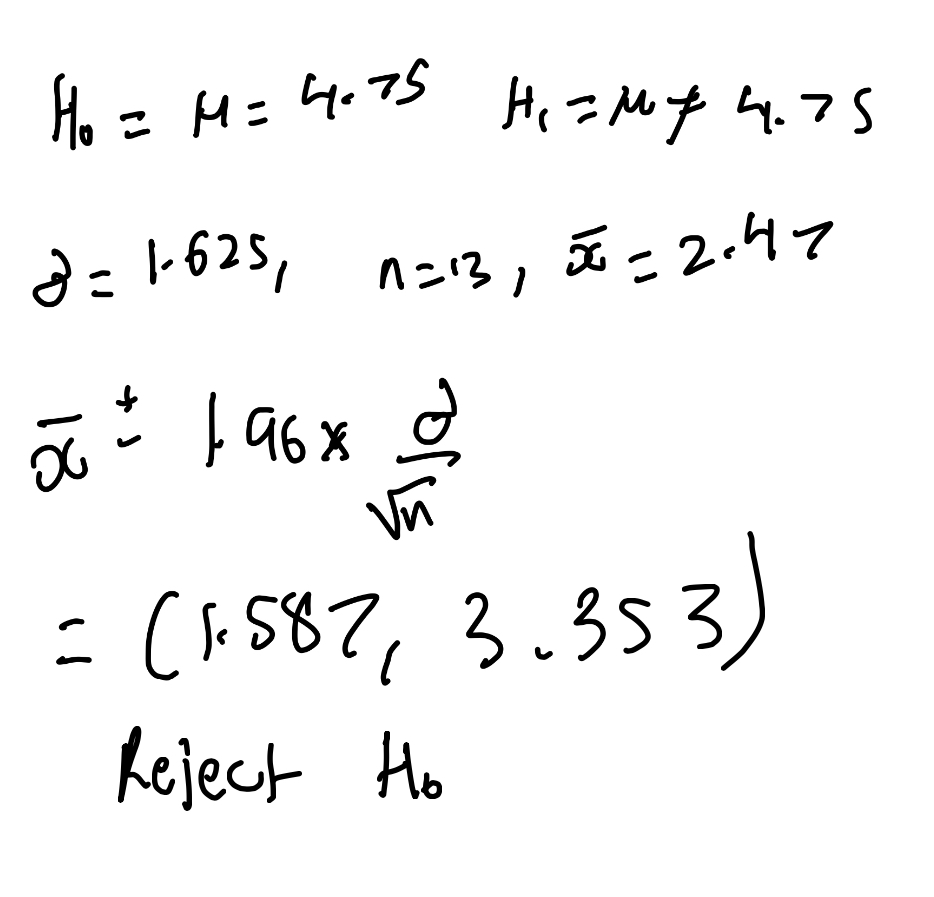 H₀ = μ = 4.75 H₁ = μ ≠ 4.75
∂ = 1.625, n = 13, x̄ = 2.47
x̄ ± 1.96 × ∂/√n
= (1.587, 3.353)
Reject H₀